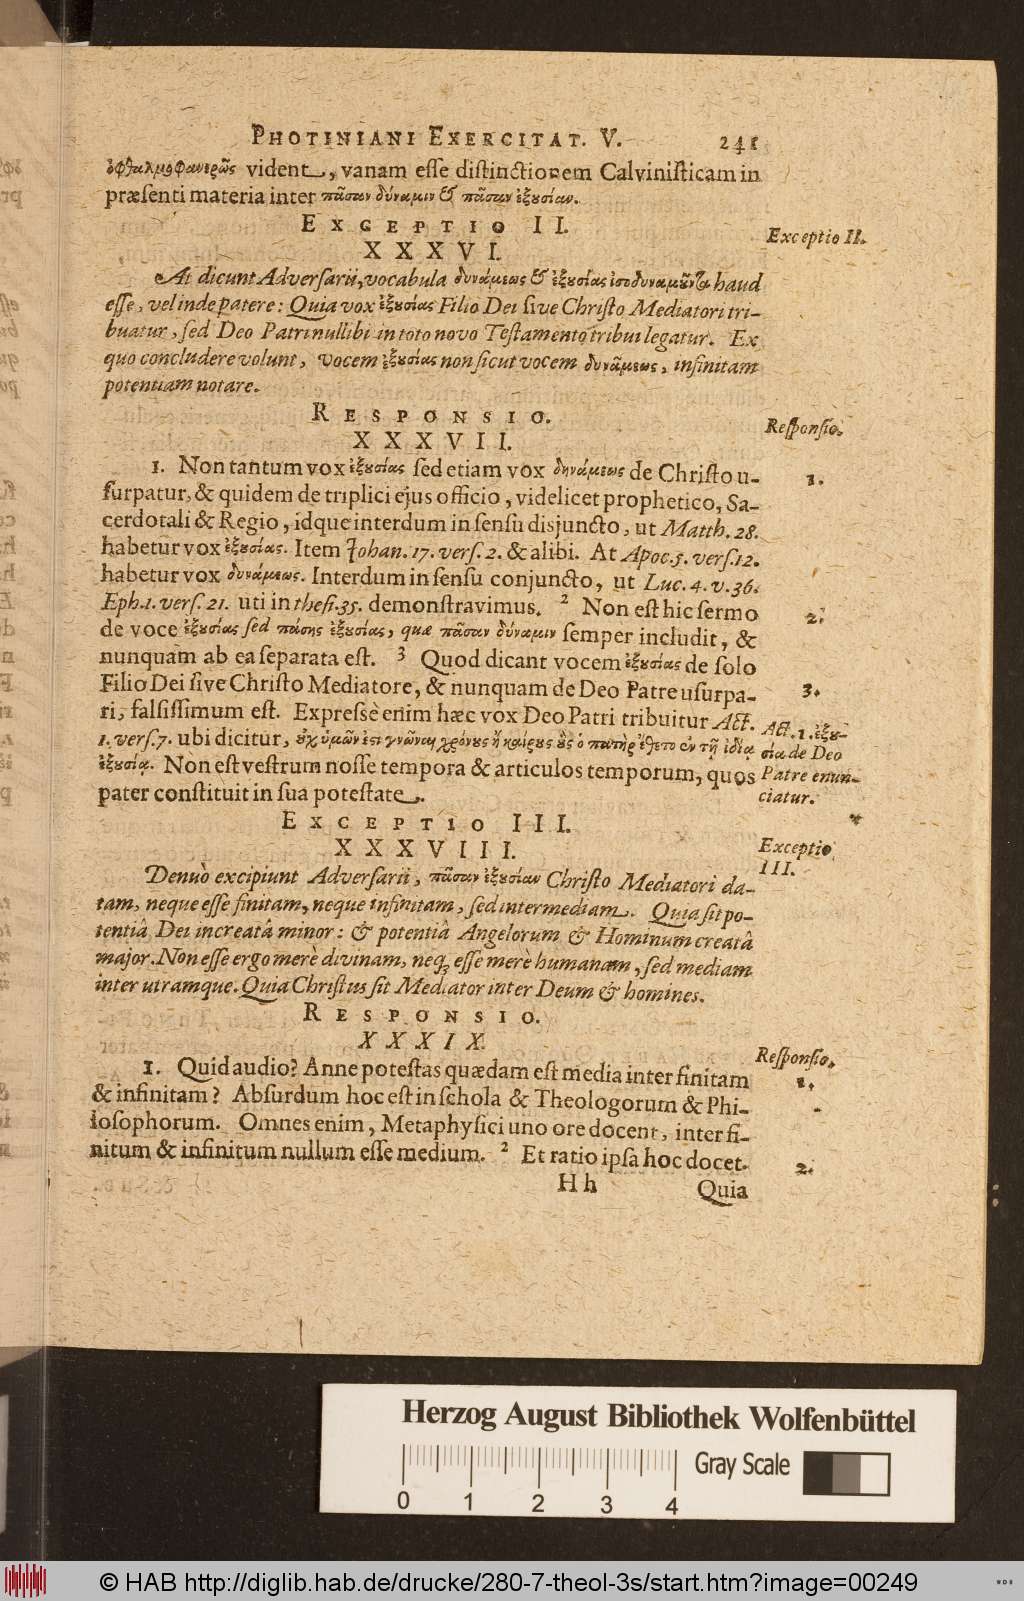 PHOTINIANI EXERCITAT. V. 241
ὀφθαλμοφανερῶς vident, vanam esse distinctionem Calvinisticam in
præsenti materia inter πᾶσαν δύναμιν & πᾶσαν ἐξουσίαν.
EXCEPTIO II.
Exceptio II.
XXXVI.
At dicunt Adversarii, vocabula δυνάμεως & ἐξουσίας ἰσοδυναμοῦντα haud
esse, vel inde patere: Quia vox ἐξουσίας Filio Dei sive Christo Mediatori tri-
buatur, sed Deo Patri nullibi in toto novo Testamento tribui legatur. Ex
quo concludere volunt, vocem ἐξουσίας non sicut vocem δυνάμεως, infinitam
potentiam notare.
RESPONSIO.
Responsio.
XXXVII.
1. Non tantum vox ἐξουσίας sed etiam vox δηνάμεως de Christo u-
1.
surpatur, & quidem de triplici ejus officio, videlicet prophetico, Sa-
cerdotali & Regio, idque interdum in sensu disjuncto, ut Matth. 28.
habetur vox ἐξουσίας. Item Johan. 17. vers. 2. & alibi. At Apoc. 5. vers. 12.
habetur vox δυνάμεως. Interdum in sensu conjuncto, ut Luc. 4. v. 36.
Eph. 1. vers. 21. uti in thesi. 35. demonstravimus. 2 Non est hic sermo
2.
de voce ἐξουσίας sed πάσης ἐξουσίας, quæ πᾶσαν δύναμιν semper includit, &
nunquam ab ea separata est. 3 Quod dicant vocem ἐξουσίας de solo
Filio Dei sive Christo Mediatore, & nunquam de Deo Patre usurpa-
3.
ri, falsissimum est. Expressè enim hæc vox Deo Patri tribuitur Act.
1. vers. 7. ubi dicitur, οὐχ ὑμῶν ἐστι γνῶναι χρόνους ἢ καίρους οὓς ὁ πατὴρ ἔθετο ἐν τῇ ἰδίᾳ
ἐξουσίᾳ. Non est vestrum nosse tempora & articulos temporum, quos
pater constituit in sua potestate.
Act. 1. ἐξου-
σία de Deo
Patre enun-
ciatur.
EXCEPTIO III.
XXXVIII.
Exceptio
III.
Denuò excipiunt Adversarii, πᾶσαν ἐξουσίαν Christo Mediatori da-
tam, neque esse finitam, neque infinitam, sed intermediam. Quia sit po-
tentiâ Dei increatâ minor: & potentiâ Angelorum & Hominum creatâ
major. Non esse ergo merè divinam, neq; esse merè humanam, sed mediam
inter utramque. Quia Christus sit Mediator inter Deum & homines.
RESPONSIO.
XXXIX.
Responsio.
1. Quid audio? Anne potestas quædam est media inter finitam
1.
& infinitam? Absurdum hoc est in schola & Theologorum & Phi-
losophorum. Omnes enim, Metaphysici uno ore docent, inter fi-
nitum & infinitum nullum esse medium. 2 Et ratio ipsa hoc docet.
2.
Hh Quia
Herzog August Bibliothek Wolfenbüttel
Gray Scale
0 1 2 3 4
© HAB http://diglib.hab.de/drucke/280-7-theol-3s/start.htm?image=00249